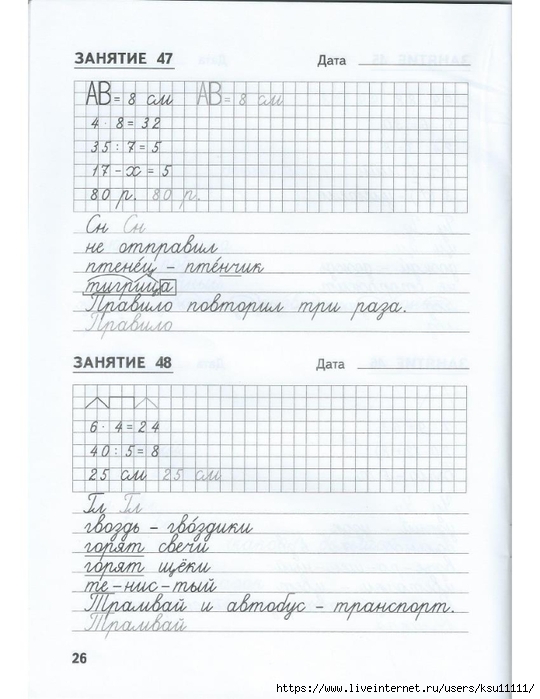 ЗАНЯТИЕ 47 Дата
AB = 8 см AB = 8 см
4 · 8 = 32
35 : 7 = 5
17 - x = 5
80 р. 80 р.
Сн Сн
не отправил
птене́ц - пте́нчик
тигрица
Правило повторил три раза.
Правило
ЗАНЯТИЕ 48 Дата
6 · 4 = 24
40 : 5 = 8
25 см 25 см
Гл Гл
гвоздь - гво́здики
горят свечи
горят щёки
те-нис-тый
Трамвай и автобус - транспорт.
Трамвай
26
https://www.liveinternet.ru/users/ksu11111/